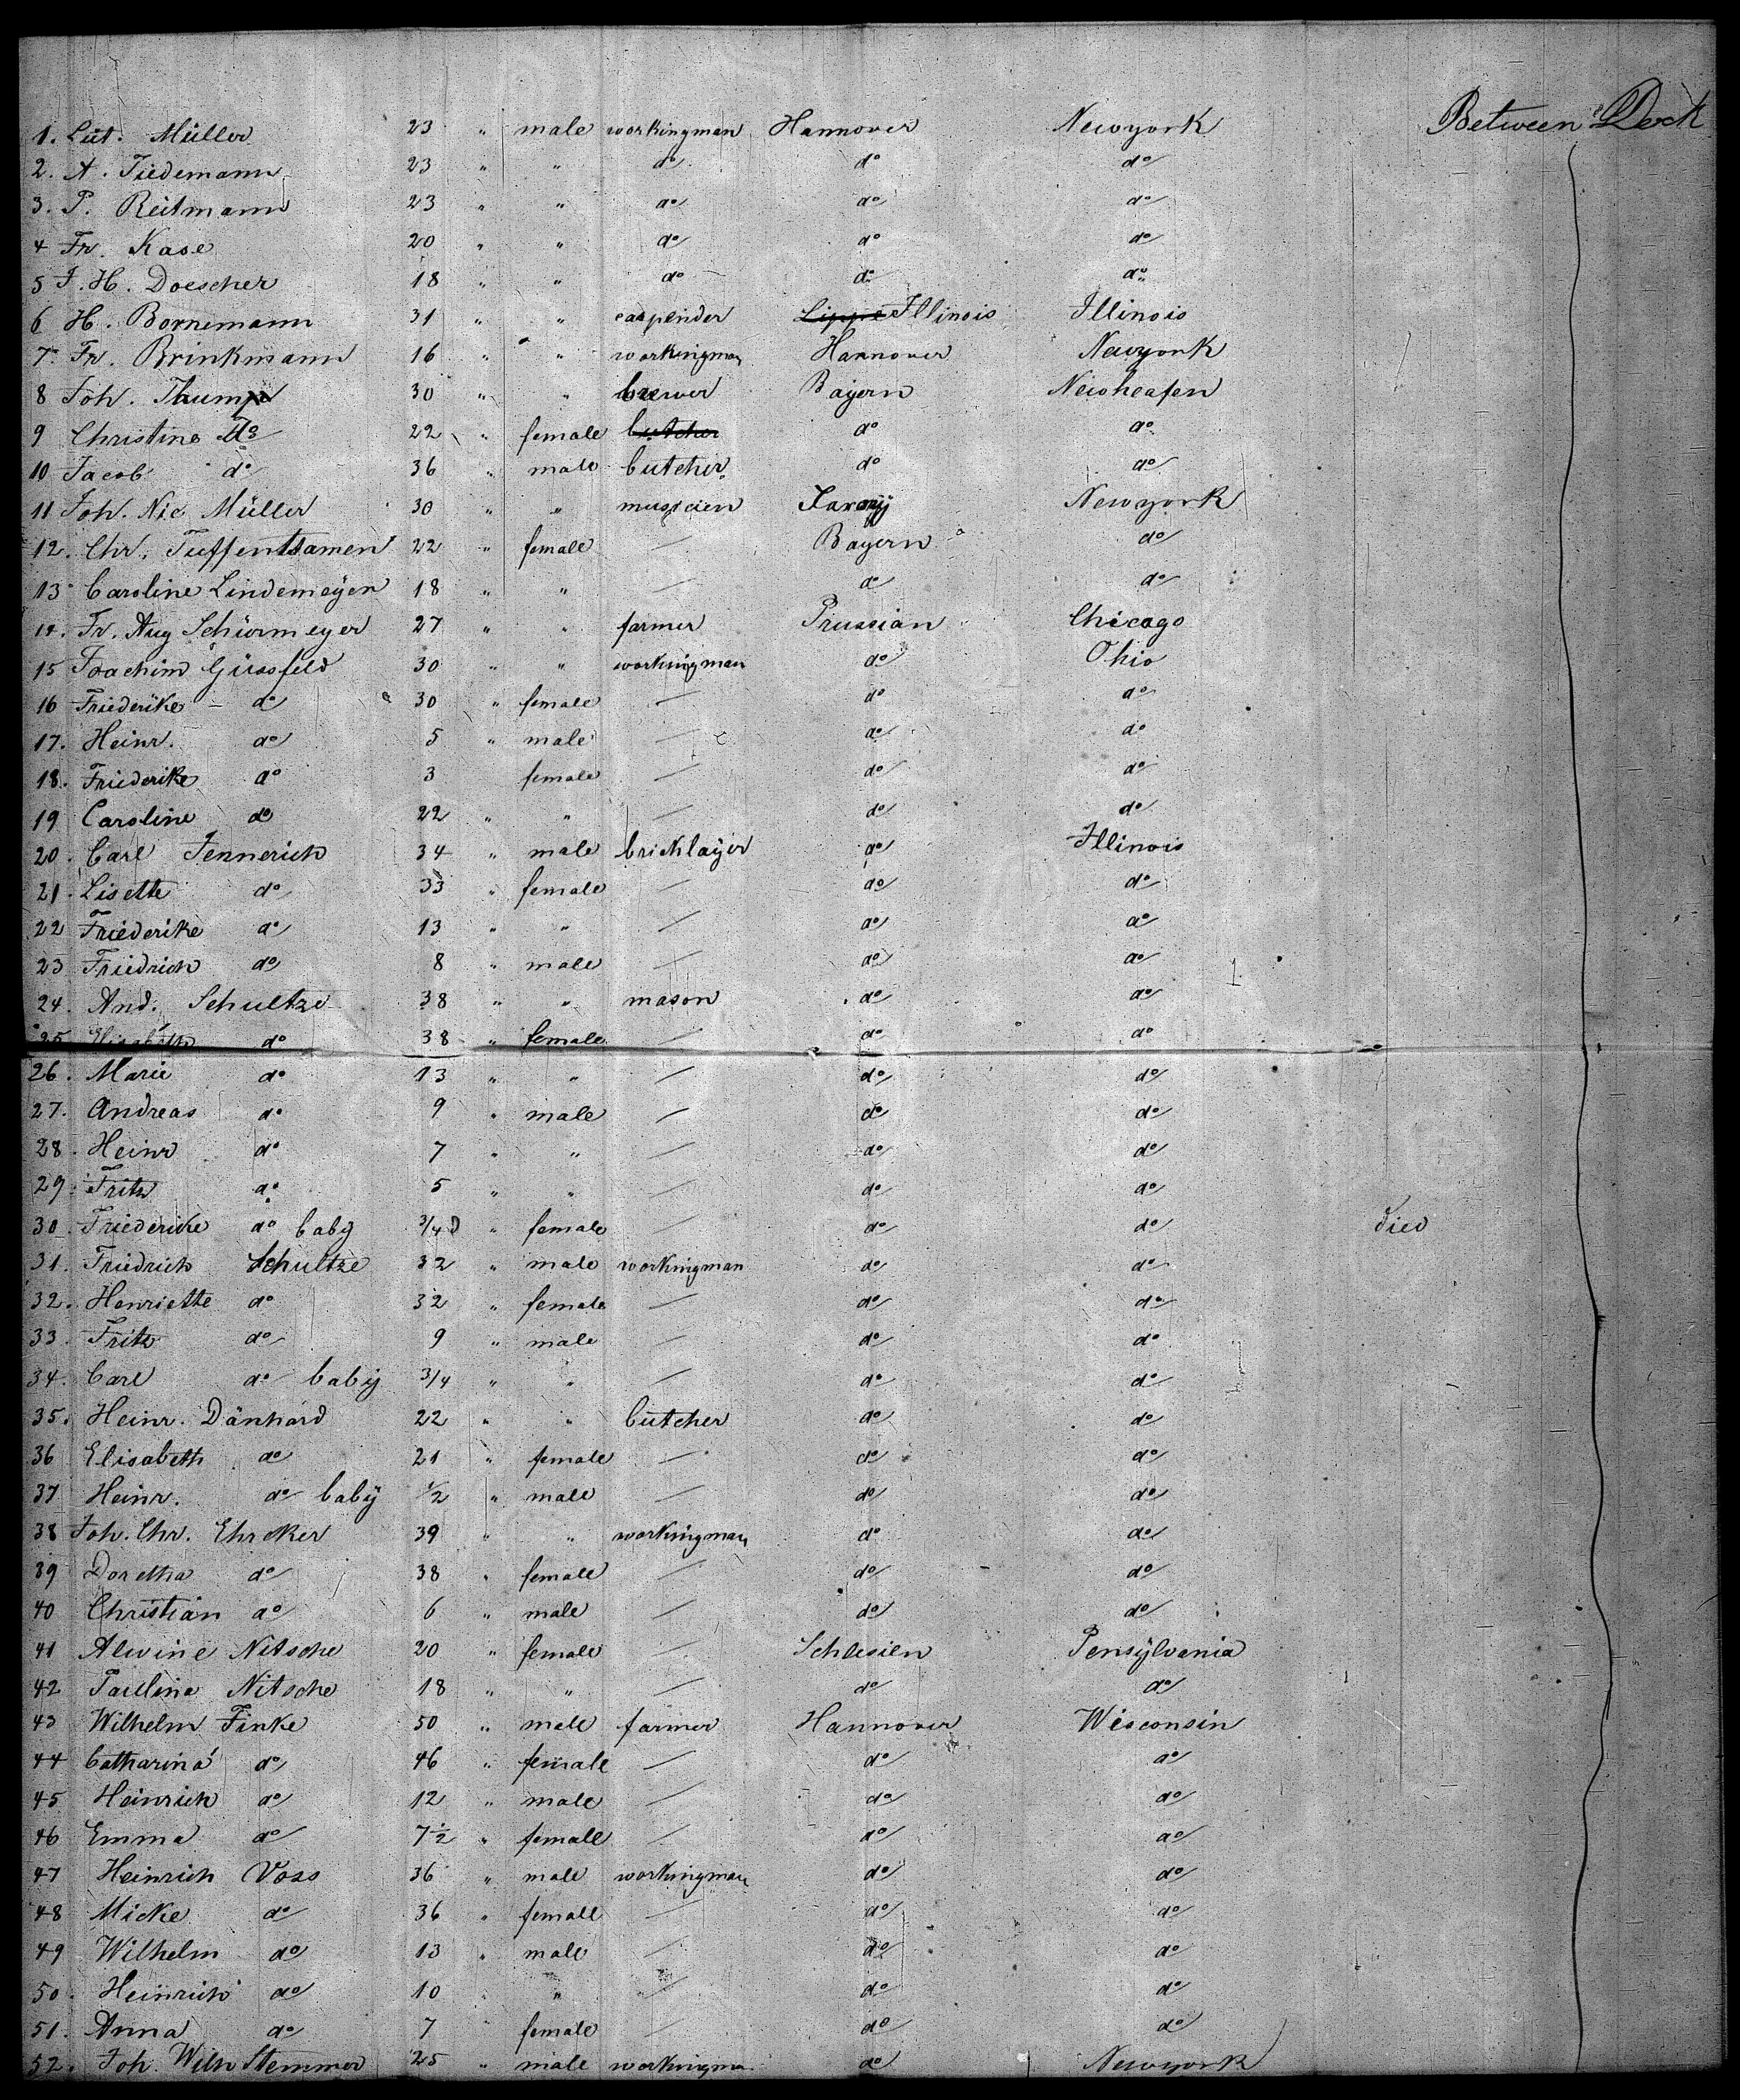 Between Deck
1. Lüt. Müller 23 " male workingman Hannover Newyork
2. A. Tiedemann 23 " " do do do
3. P. Reitmann 23 " " do do do
4 Fr. Kase 20 " " do do do
5 J. H. Doescher 18 " " do do do
6 H. Bornemann 31 " " carpender Lippe Illinois Illinois
7 Fr. Brinkmann 16 " " workingman Hannover Newyork
8 Joh. Thump 30 " " brewer Bayern Newheafen
9 Christine do 22 " female butcher do do
10 Jacob do 36 " male butcher do do
11 Joh. Nic Müller 30 " " musicien Newyork
12. Chr. Tuffentsamen 22 " female — Bayern do
13 Caroline Lindemeÿer 18 " " — do do
14. Fr. Aug Schürmeyer 27 " " farmer Prussian Chicago
15 Joachim Güssfeld 30 " " workingman do Ohio
16 Friederike do 30 " female — do do
17. Heinr. do 5 " male — do do
18. Friederike do 3 female — do do
19 Caroline do 22 " " — do do
20. Carl Jennerich 34 " male bricklaÿer do Illinois
21. Lisette do 33 " female — do do
22 Friederike do 13 " " — do do
23 Friedrich do 8 " male — do do
24. And. Schultze 38 " " mason do do
25 Elisabeth do 38 " female — do do
26. Marie do 13 " " — do do
27. Andreas do 9 " male — do do
28. Heinr do 7 " " — do do
29. Fritz do 5 " " — do do
30. Friederike do baby 3/4 " female — do do died
31. Friedrich Schultze 32 " male workingman do do
32. Henriette do 32 " female — do do
33. Fritz do 9 " male — do do
34. Carl do baby 3/4 " " — do do
35. Heinr. Dänhard 22 " " bütcher do do
36 Elisabeth do 21 " female — do do
37 Heinr. do babÿ 1/2 " male — do do
38 Joh. Chr. Ehrcker 39 " " workingman do do
39 Doretha do 38 " female — do do
40 Christian do 6 " male — do do
41 Alwine Nitsche 20 " female — Schlesien Pensÿlvania
42 Paulina Nitsche 18 " " — do do
43 Wilhelm Finke 50 " male farmer Hannover Wisconsin
44 Catharina do 46 " female — do do
45 Heinrich do 12 " male — do do
46 Emma do 7 1/2 " female — do do
47 Heinrich Voss 36 " male workingman do do
48 Micke do 36 " female — do do
49 Wilhelm do 13 " male — do do
50. Heinrich do 10 " — do do
51. Anna do 7 " female — do do
52. Joh. Wilh Stemmer 25 " male workingma do Newyork